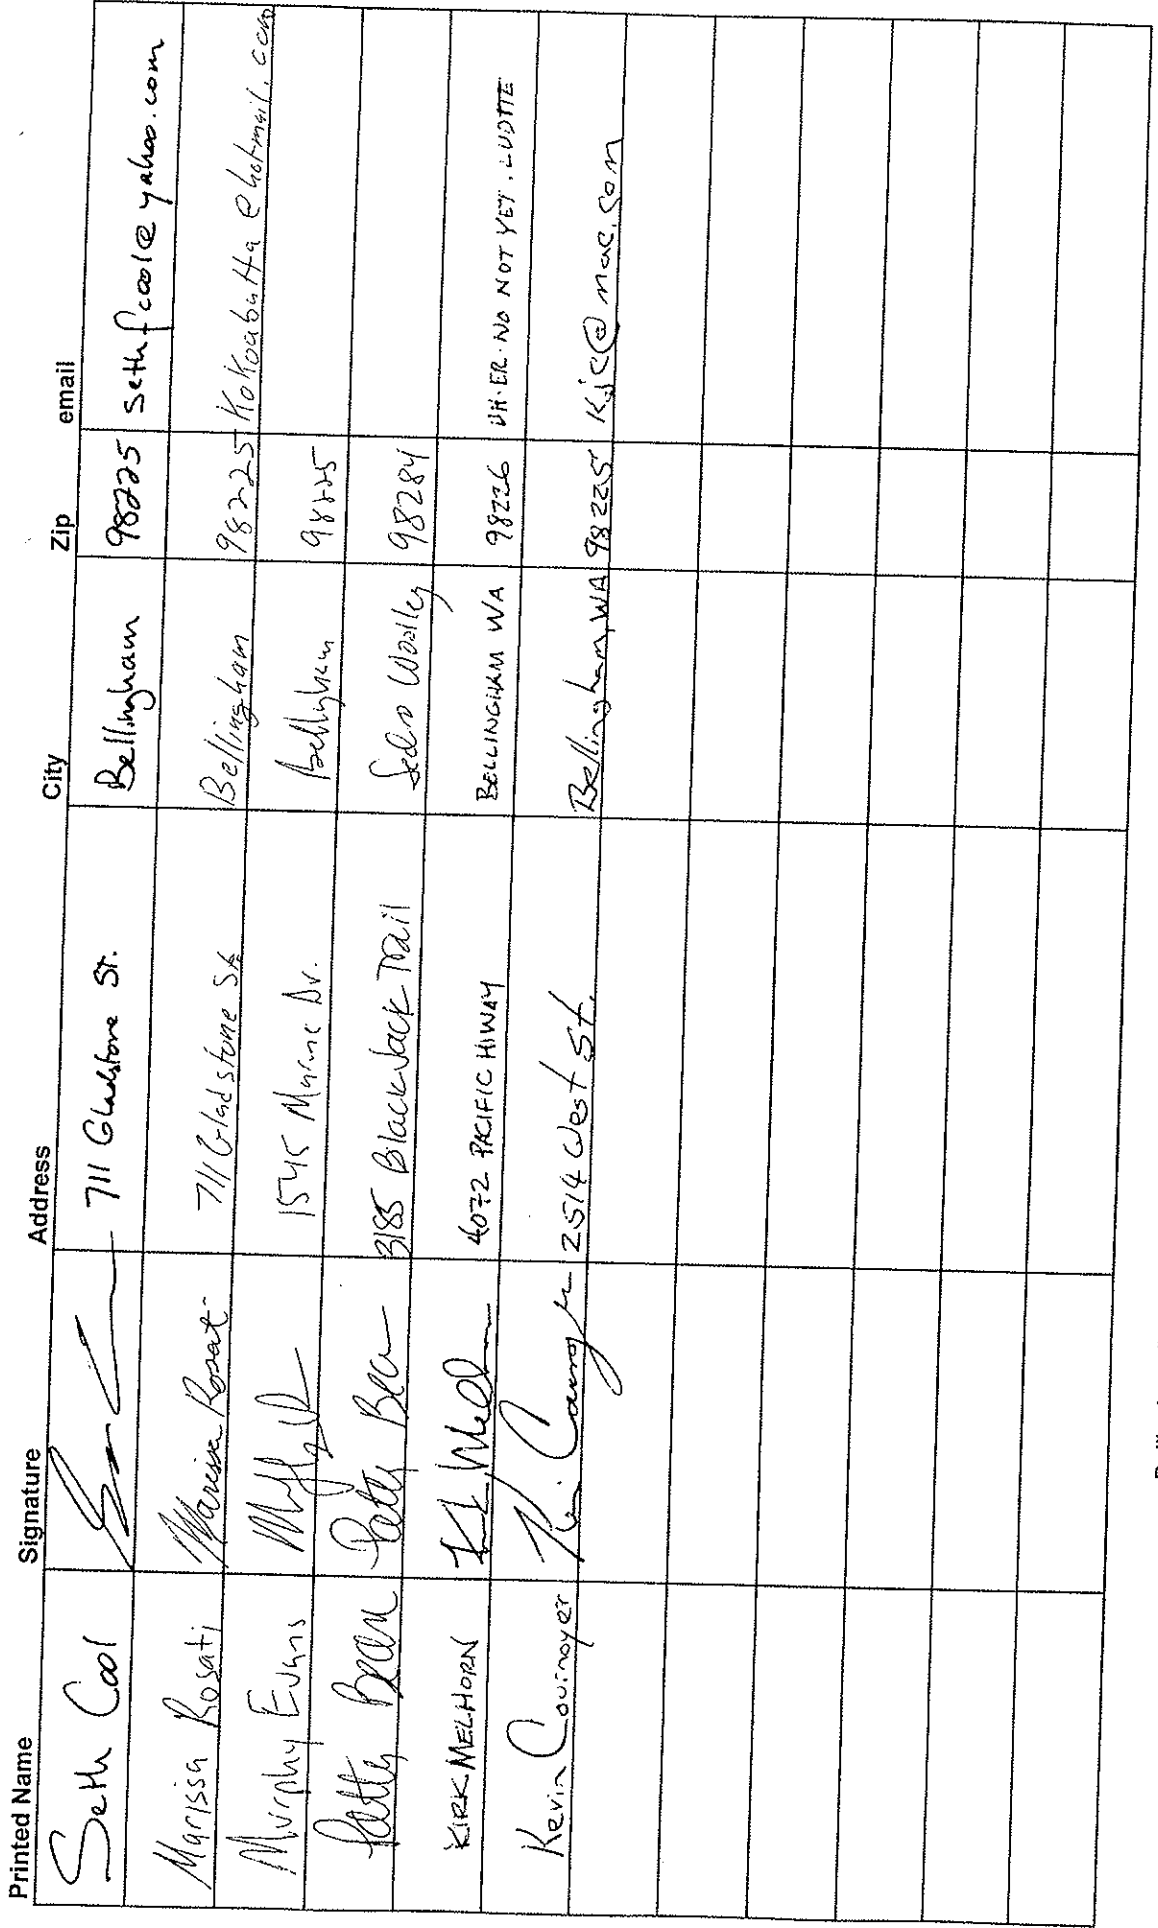 Printed Name Signature Address City Zip email
Seth Cool 711 Gladstone St. Bellingham 98225 sethfcool@yahoo.com
Marissa Rosati Marissa Rosati 711 Gladstone St Bellingham 98225 Kokobutta@hotmail.com
Murphy Evans 1545 Marine Dr. Bellingham 98225
Patty Bean Patty Bean 3185 BlackJack Trail Sedro Woolley 98284
KIRK MELHORN 4072 PACIFIC HIWAY BELLINGHAM WA 98226 UH·ER·NO NOT YET. LUDITE
Kevin Cournoyer 2514 West St. Bellingham, WA 98225 Kjc@mac.com